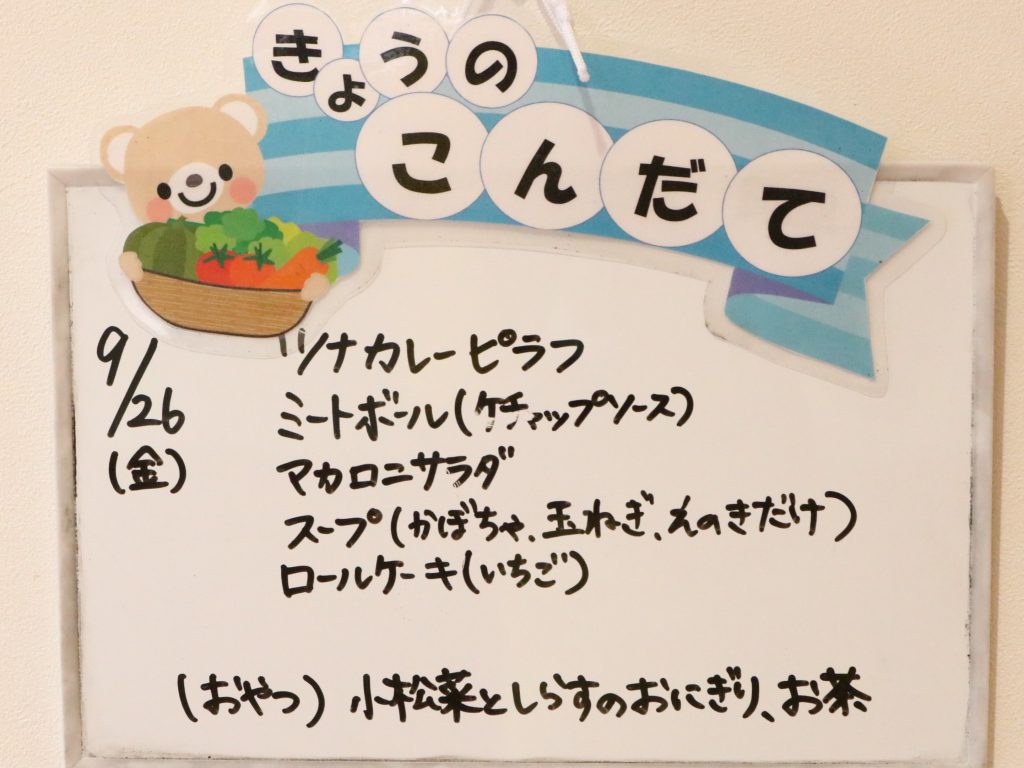 きょうの
こんだて
9/26
(金)
ツナカレーピラフ
ミートボール(ケチャップソース)
マカロニサラダ
スープ(かぼちゃ、玉ねぎ、えのきだけ)
ロールケーキ(いちご)
(おやつ) 小松菜としらすのおにぎり、お茶